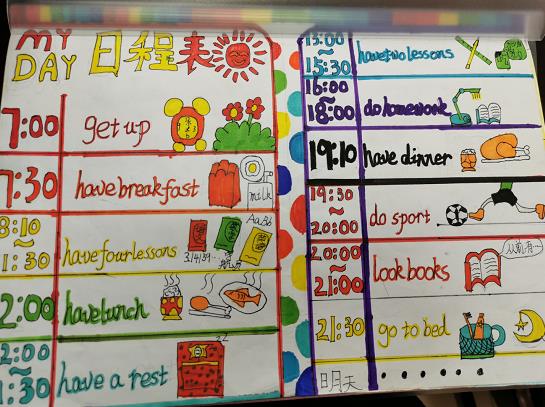 MY
DAY 日程表
7:00 get up
7:30 have breakfast
milk
8:10
~
1:30 have four lessons
3.1415...
Aa Bb
2:00 have lunch
2:00
~
1:30 have a rest
zz
13:00
~
15:30 have two lessons
16:00
~
18:00 do homework
19:10 have dinner
19:30
~
20:00 do sport
20:00
~
21:00 look books
21:30 go to bed
明天 ......